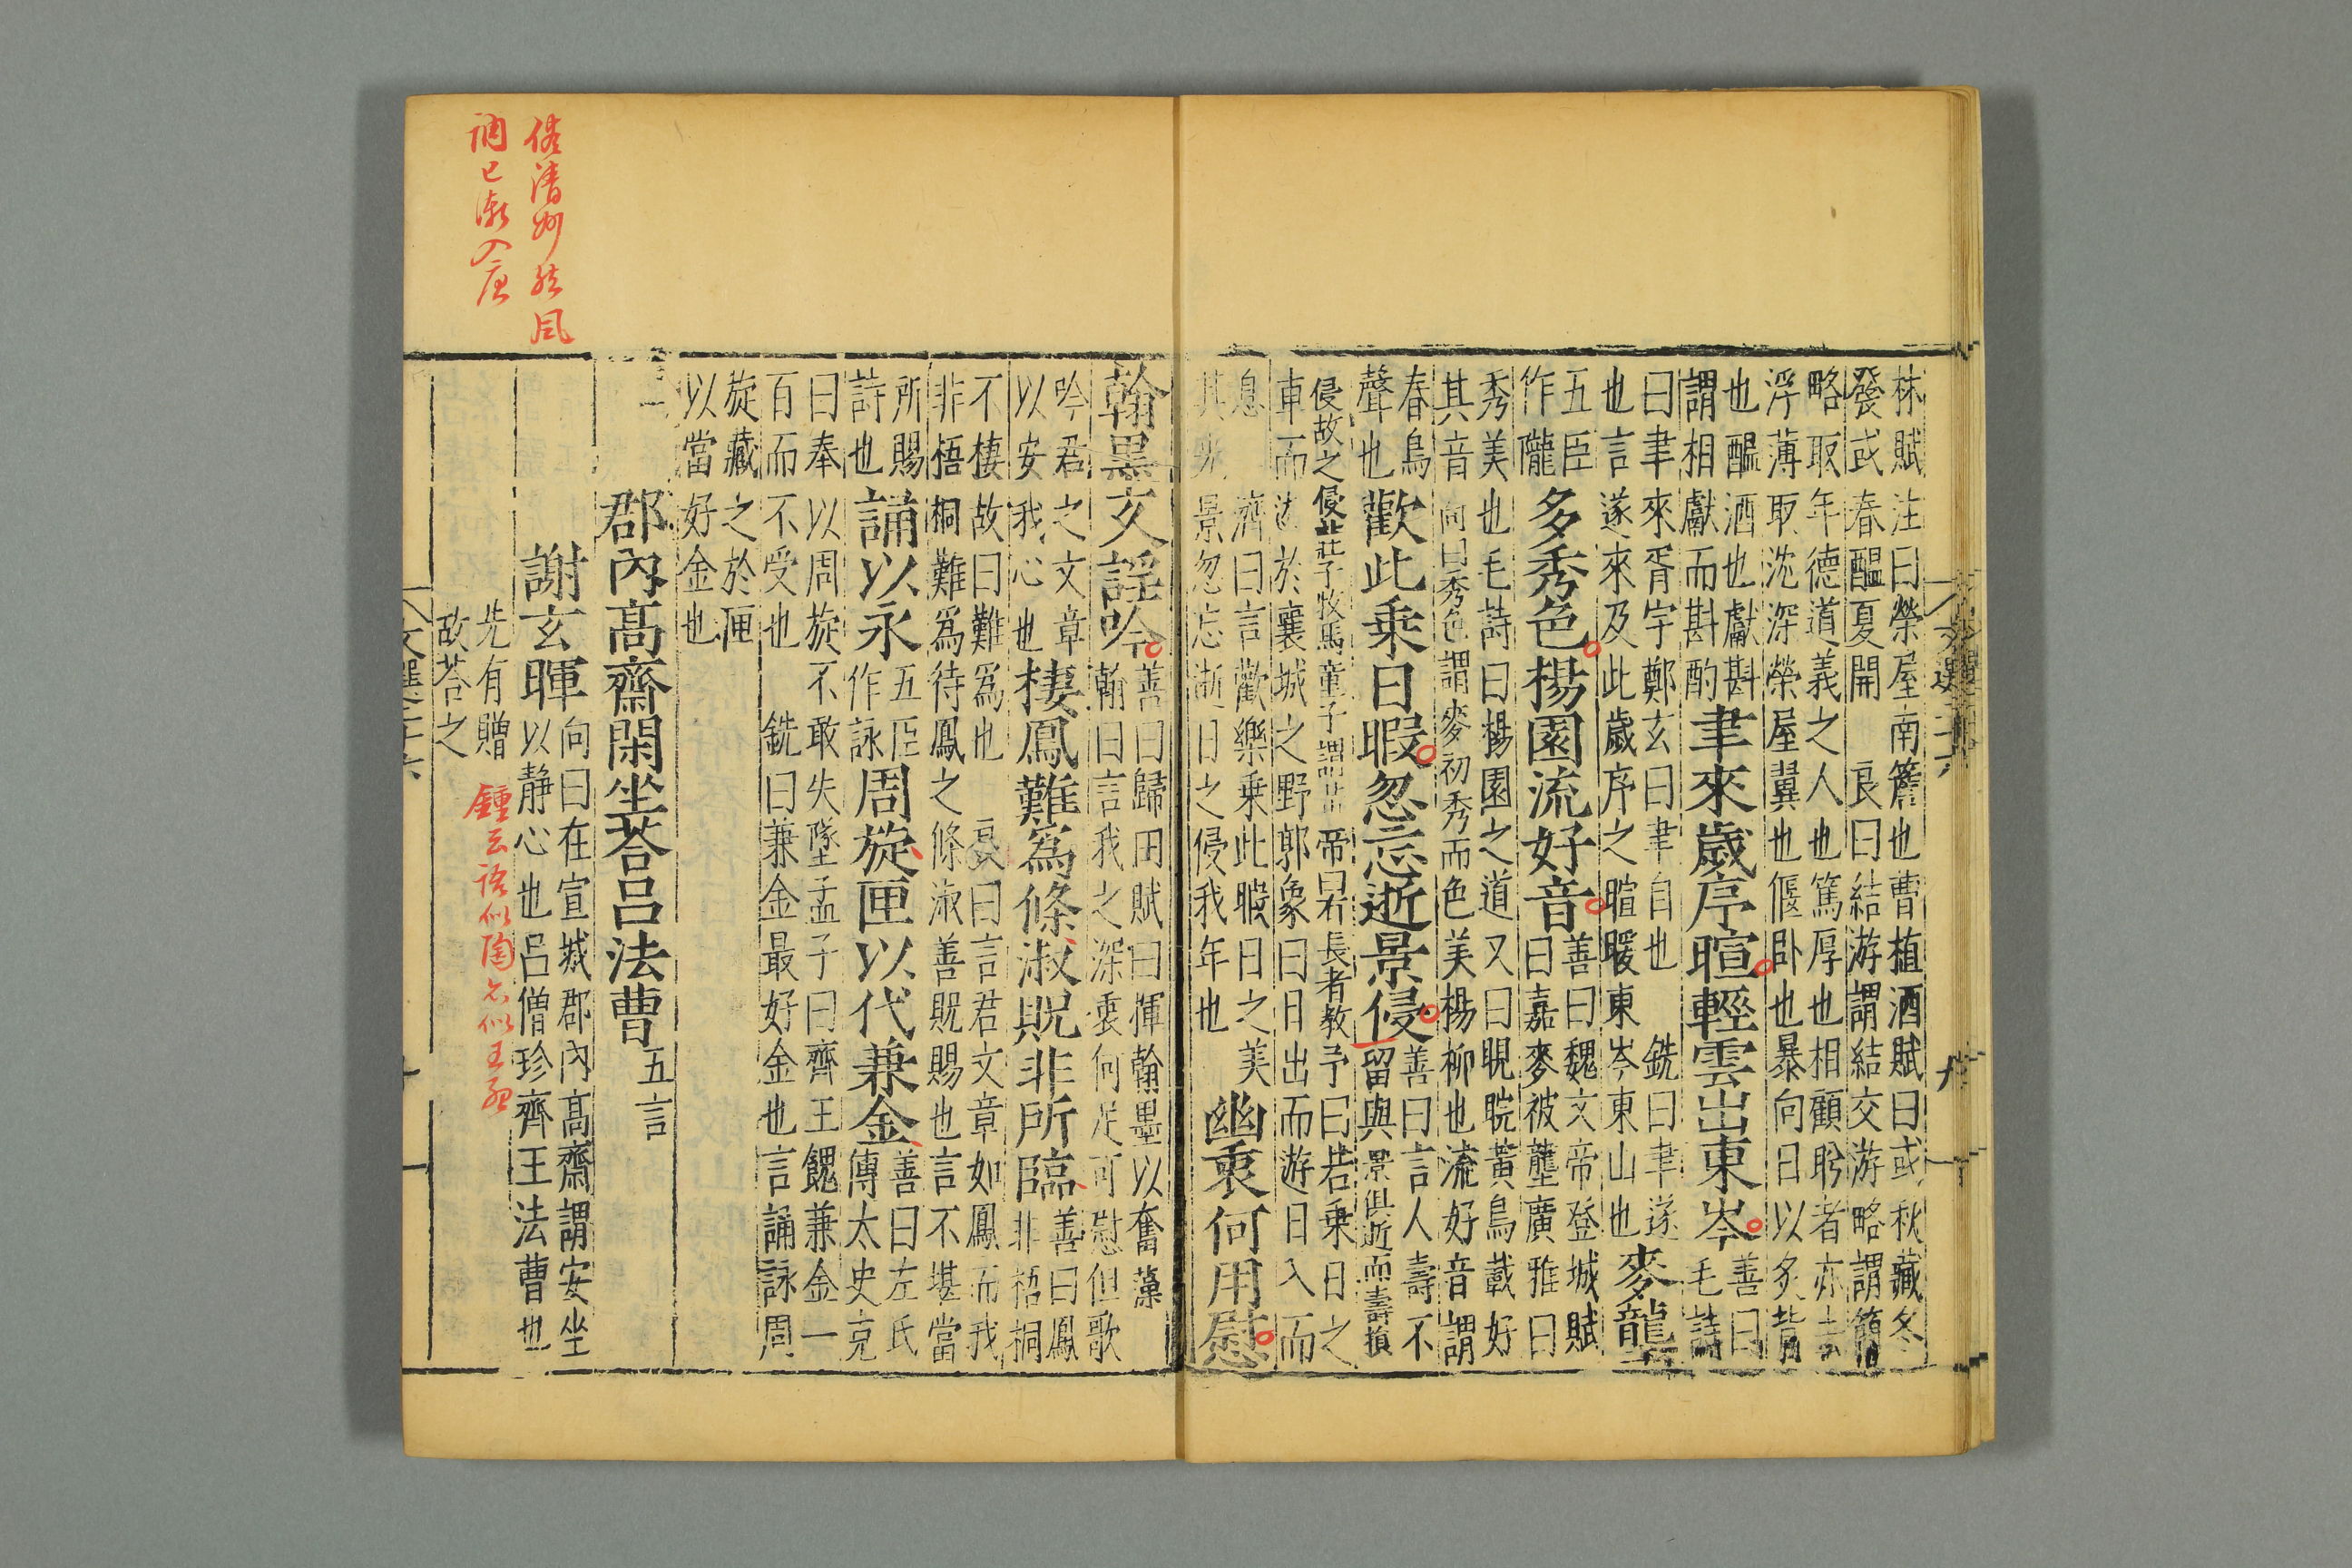 林賦注曰榮屋南簷也曹植酒賦曰或秋藏冬
發或春醞夏開　良曰結游謂結交游略謂簡
略取年德道義之人也篤厚也相顧盻者亦去
浮薄取沈深榮屋翼也偃卧也暴向日以炙背
也醞酒也獻斟
謂相獻而斟酌聿來歲序暄輕雲出東岑善曰
毛詩
曰聿來胥宇鄭玄曰聿自也　銑曰聿遂
也言遂來及此歲序之暄暖東岑東山也麥壟
五臣
作隴多秀色楊園流好音善曰魏文帝登城賦
曰嘉麥被壟廣雅曰
秀美也毛詩曰楊園之道又曰睍睆黃鳥載好
其音　向曰秀色謂麥初秀而色美楊柳也流好音謂
春鳥
聲也歡此乘日暇忽忘逝景侵善曰言人壽不
留與景俱逝而壽損
侵故之侵莊子牧馬童子謂帝曰長者教予曰若乘日之
車而游於襄城之野郭象曰日出而游日入而
息　濟曰言歡樂乘此暇日之美
其光景忽忘逝日之侵我年也幽衷何用慰
翰墨文謡吟善曰歸田賦曰揮翰墨以奮藻
翰曰言我之深衷何足可慰但歌
吟君之文章
以安我心也棲鳳難爲條淑貺非所臨善曰鳳
非梧桐
不棲故曰難爲也　良曰言君文章如鳳而我
非梧桐難爲待鳳之條淑善貺賜也言不堪當
所賜
詩也誦以永五臣
作詠周旋匣以代兼金善曰左氏
傳太史克
曰奉以周旋不敢失墜孟子曰齊王餽兼金一
百而不受也　銑曰兼金最好金也言誦詠周
旋藏之於匣
以當好金也
郡內高齋閑坐荅呂法曹五言
謝玄暉向曰在宣城郡內高齋謂安坐
以靜心也呂僧珍齊王法曹也
先有贈
故荅之
鍾云語似陶不似王
調已漸入唐
文選二十六